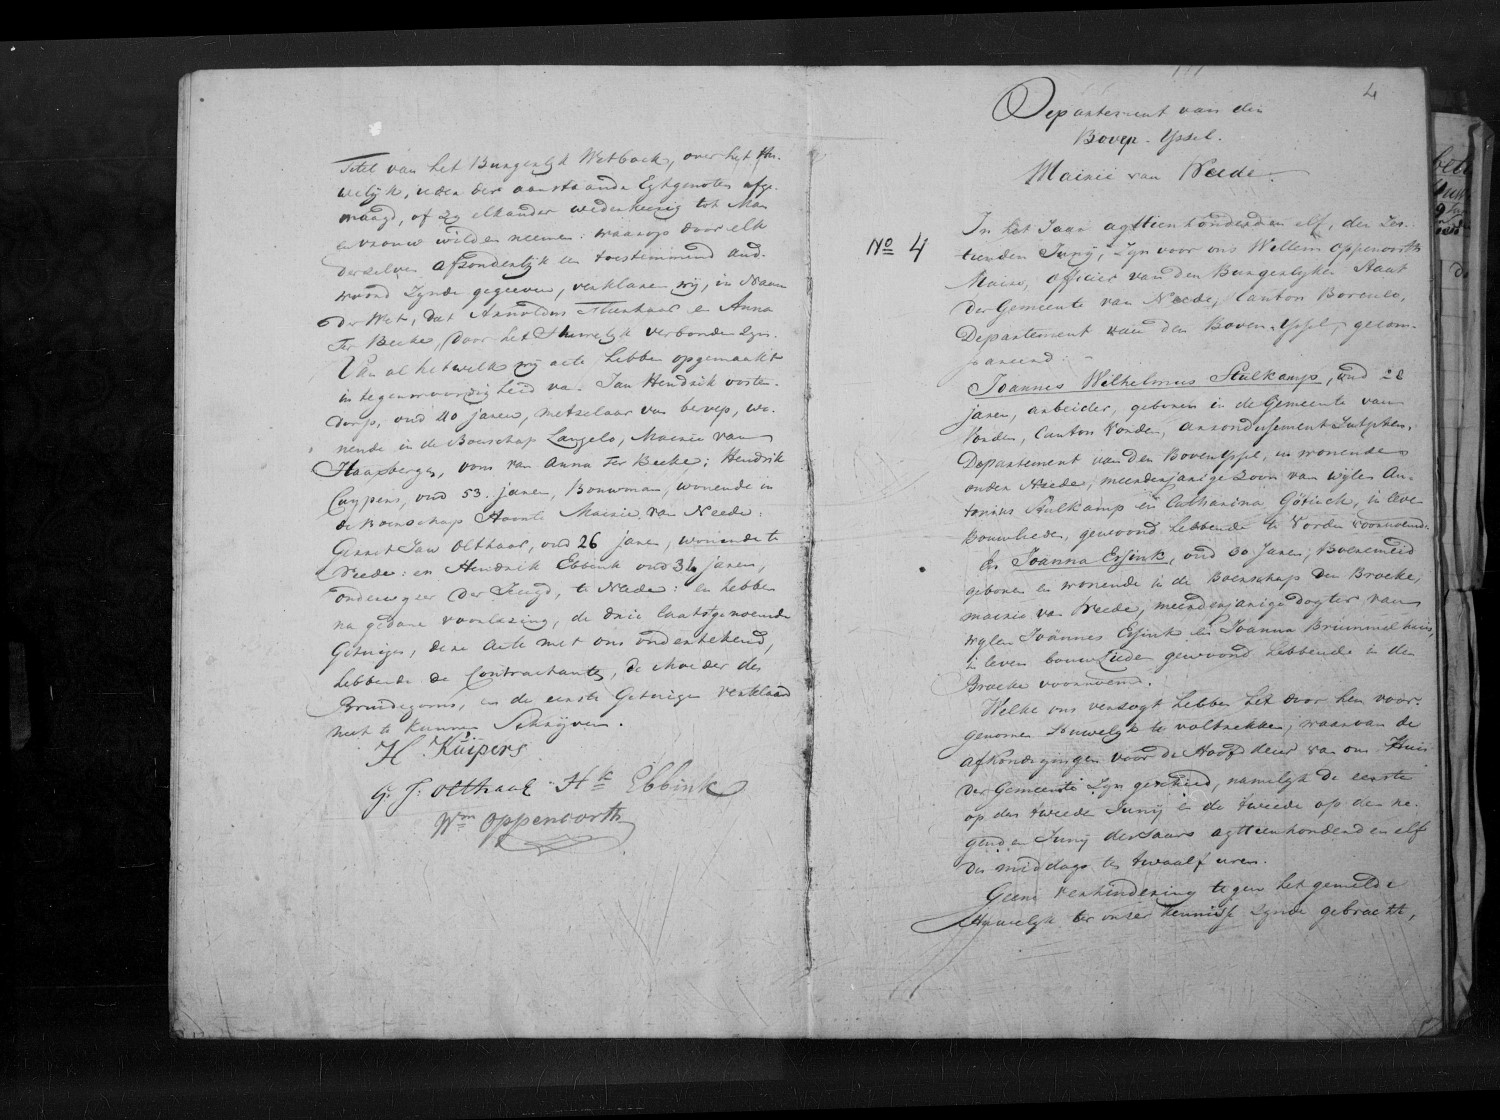 Titel van het Burgerlyk Wetboek, over het Hu-
welyk, ieder der aanstaande Egtgenoten afge-
vraagd, of zy elkander wederkeerig tot Man
en vrouw wilden neemen: waarop door elk
derzelver afzonderlyk een toestemmend and-
woord zynde gegeeven, verklaren wy, in Naam
der Wet, dat Arnoldus Tlenhaar en Anna
Ter Beeke, door het Huwelyk verbonden zyn.
Van al hetwelk wy acte hebben opgemaakt
in tegenwoordigheid van Jan Hendrik ooste-
dorp, oud 40 jaren, metzelaar van beroep, wo-
nende in de Boerschap Langelo, Mairie van
Haaxbergen, oom van Anna Ter Beeke; Hendrik
Cuypers, oud 53. jaren, Bouwman, wonende in
de Boerschap Hoonte Mairie van Neede:
Gerret Jan Olthaar, oud 26 jaren, wonende te
Neede: en Hendrik Ebbink oud 34 jaren,
onderwyzer der Jeugd, te Neede: en hebben
na gedane voorlezing, de drie laatstgenoemde
Getuigen, deze Acte met ons onderteekend,
hebbende de Contractanten, de Moeder des
Bruidegoms, en de eerste Getuigen verklaard
niet te kunnen Schryven.
H. Kuipers
G. J. olthaar Hk Ebbink
Wm Oppenoorth
4
Departement van den
Boven-Yssel.
Mairie van Neede.
No 4
In het Jaar agttienhonderd en elf, den Zes-
tienden Juny, zyn voor ons Willem Oppenoorth
Maire, officier van den Burgerlyken Staat
der Gemeente van Neede, Canton Borculo,
Departement van den Boven-Yssel, gecom-
pareerd
Joannes Wilhelmus Stulkamp, oud 28
jaren, arbeider, geboren in de Gemeente van
Vorden, Canton Vorden, arrondissement Zutphen,
Departement van den Boven Yssel, en wonende
onder Neede, meerderjarige Zoon van wylen An-
tonius Stulkamp en Catharina Götinck, in leven
Bouwlieden, gewoond hebbende te Vorden voornoemd.
En Joanna Essink, oud 30 Jaren, Boeremeid
geboren en wonende in de Boerschap den Broeke,
mairie van Neede, meerderjarige dogter van
wylen Joannes Essink en Joanna Brummelhuis,
in leven bouwlieden gewoond hebbende in den
Broeke voornoemd.
Welke ons verzogt hebben het door hen voor-
genomen Huwelyk te voltrekken, waarvan de
afkondigingen voor de Hoofddeur van ons Huis
der Gemeente zyn geschied, namelyk de eerste
op den tweede Juny en de tweede op den ne-
genden Juny des Jaars agttienhonderd en elf
des middags te twaalf uren.
Geene verhindering tegen het gemelde
Huwelyk ter onzer kennisse zynde gebracht,